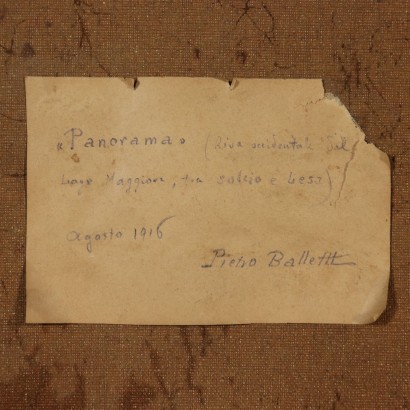 « Panorama » (Riva occidentale del
Lago Maggiore, tra calcio e Lesa)
Agosto 1916
Pietro Balletti